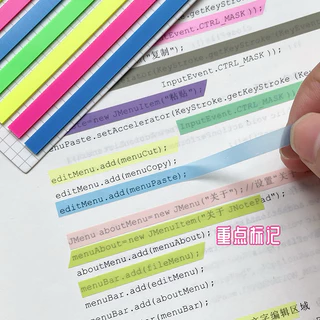 .getKeyStr
t.CTRL_MASK ));
("复制");
InputEvent.CTRL_MASK ));
=new JMenuItem("粘贴");
nuPaste.setAccelerator(KeyStroke.getKeyStroke(Key
InputEvent.CTRL_MASK ));
editMenu.add(menuCut);
editMenu.add(menuCopy);
editMenu.add(menuPaste);
JMenu aboutMenu=new JMenu("关于");//设置"关
menuAbout=new JMenuItem("关于 JNotePad");
aboutMenu.add(menuAbout);
重点标记
menuBar.add(fileMenu);
menuBar.add(editMenu);
menuBar.add(aboutMenu);
nuBar);
文字编辑区域